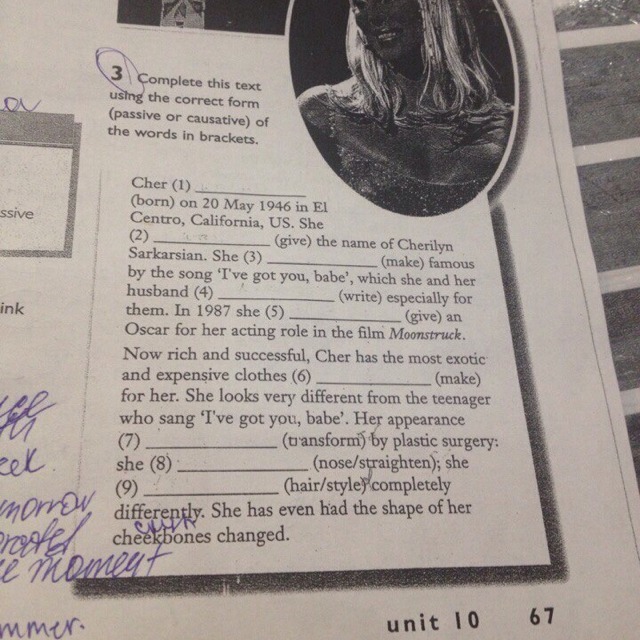 3 Complete this text
using the correct form
(passive or causative) of
the words in brackets.
Cher (1) ____________
(born) on 20 May 1946 in El
Centro, California, US. She
(2) ____________ (give) the name of Cherilyn
Sarkarsian. She (3) ____________ (make) famous
by the song ‘I've got you, babe’, which she and her
husband (4) ____________ (write) especially for
them. In 1987 she (5) ____________ (give) an
Oscar for her acting role in the film Moonstruck.
Now rich and successful, Cher has the most exotic
and expensive clothes (6) ____________ (make)
for her. She looks very different from the teenager
who sang ‘I've got you, babe’. Her appearance
(7) ____________ (transform) by plastic surgery:
she (8) ____________ (nose/straighten); she
(9) ____________ (hair/style) completely
differently. She has even had the shape of her
cheekbones changed.
ssive
ink
eek
morrow
moment
mmer.
unit 10 67